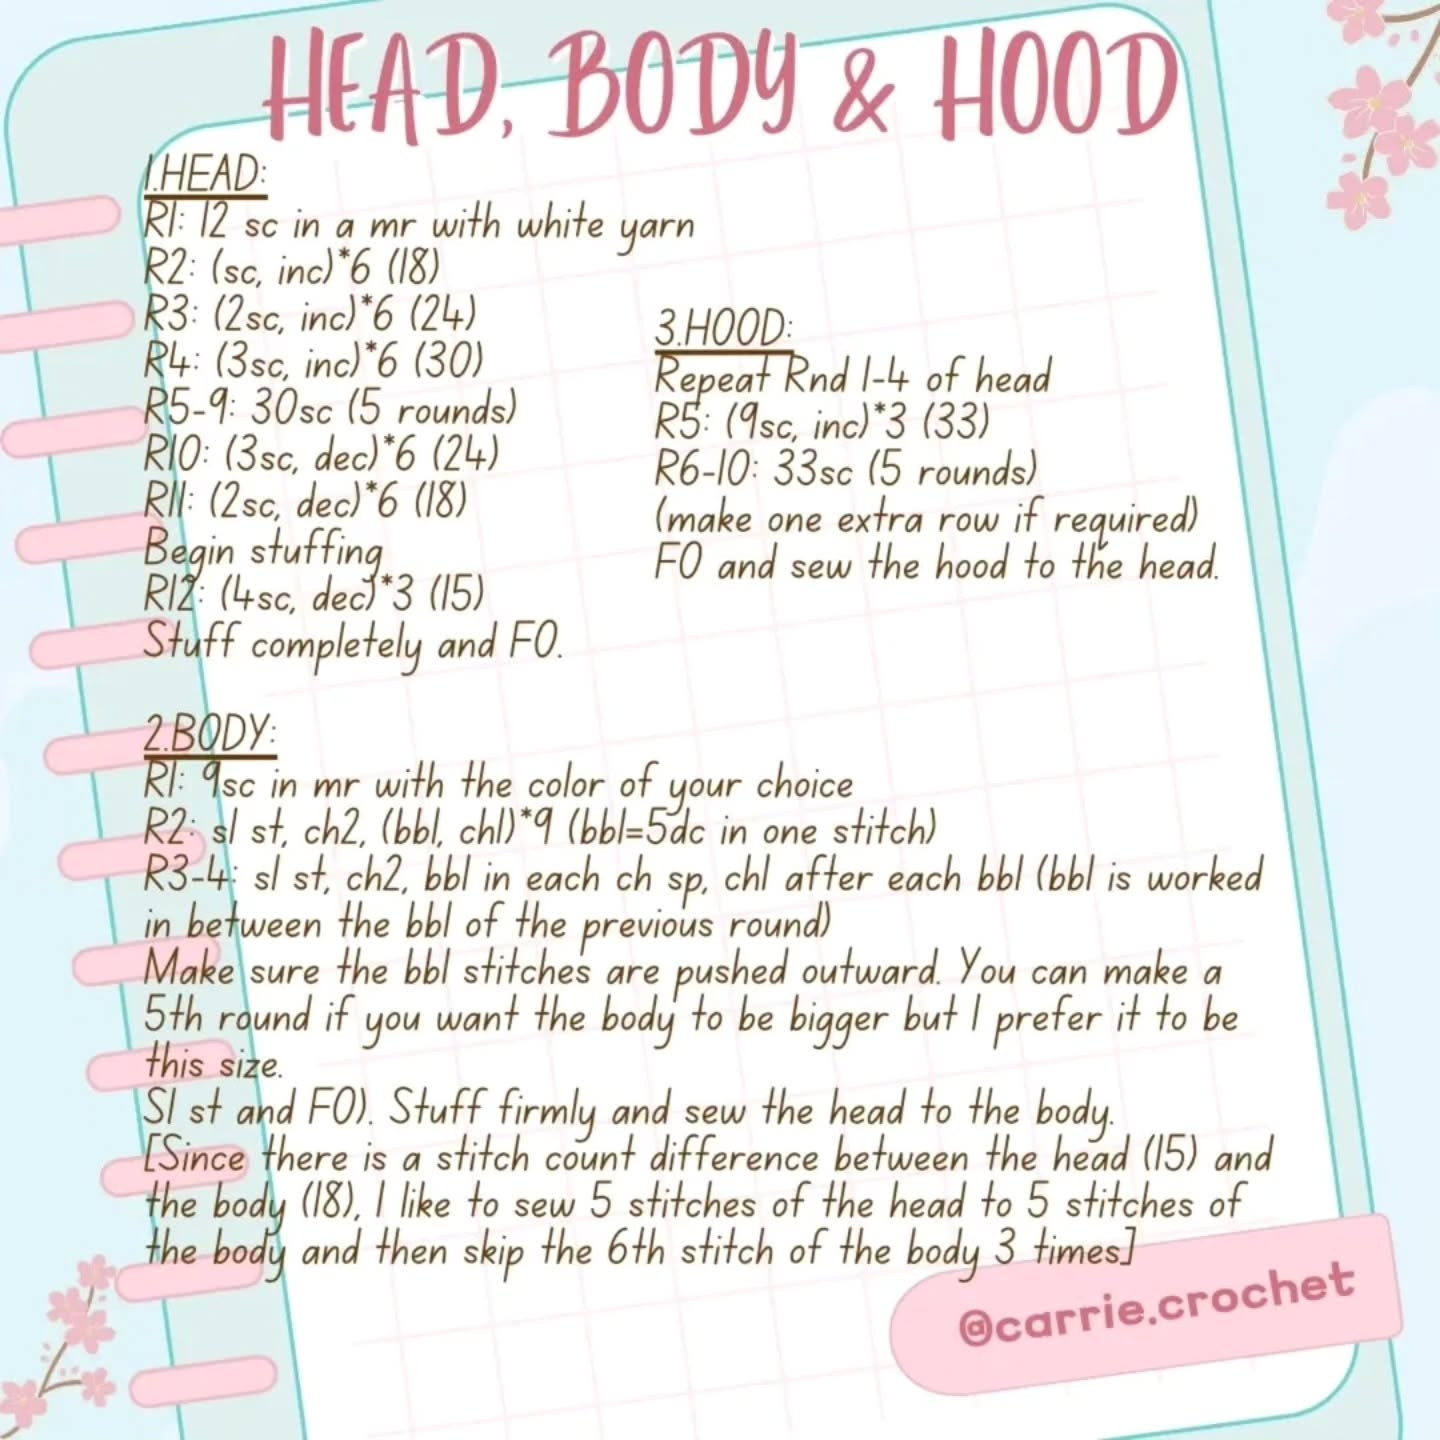 HEAD, BODY & HOOD
1.HEAD:
R1: 12 sc in a mr with white yarn
R2: (sc, inc)*6 (18)
R3: (2sc, inc)*6 (24)
R4: (3sc, inc)*6 (30)
R5-9: 30sc (5 rounds)
R10: (3sc, dec)*6 (24)
R11: (2sc, dec)*6 (18)
Begin stuffing
R12: (4sc, dec)*3 (15)
Stuff completely and FO.
2.BODY:
R1: 9sc in mr with the color of your choice
R2: sl st, ch2, (bbl, ch1)*9 (bbl=5dc in one stitch)
R3-4: sl st, ch2, bbl in each ch sp, ch1 after each bbl (bbl is worked
in between the bbl of the previous round)
Make sure the bbl stitches are pushed outward. You can make a
5th round if you want the body to be bigger but I prefer it to be
this size.
Sl st and FO). Stuff firmly and sew the head to the body.
[Since there is a stitch count difference between the head (15) and
the body (18), I like to sew 5 stitches of the head to 5 stitches of
the body and then skip the 6th stitch of the body 3 times]
3.HOOD:
Repeat Rnd 1-4 of head
R5: (9sc, inc)*3 (33)
R6-10: 33sc (5 rounds)
(make one extra row if required)
FO and sew the hood to the head.
@carrie.crochet